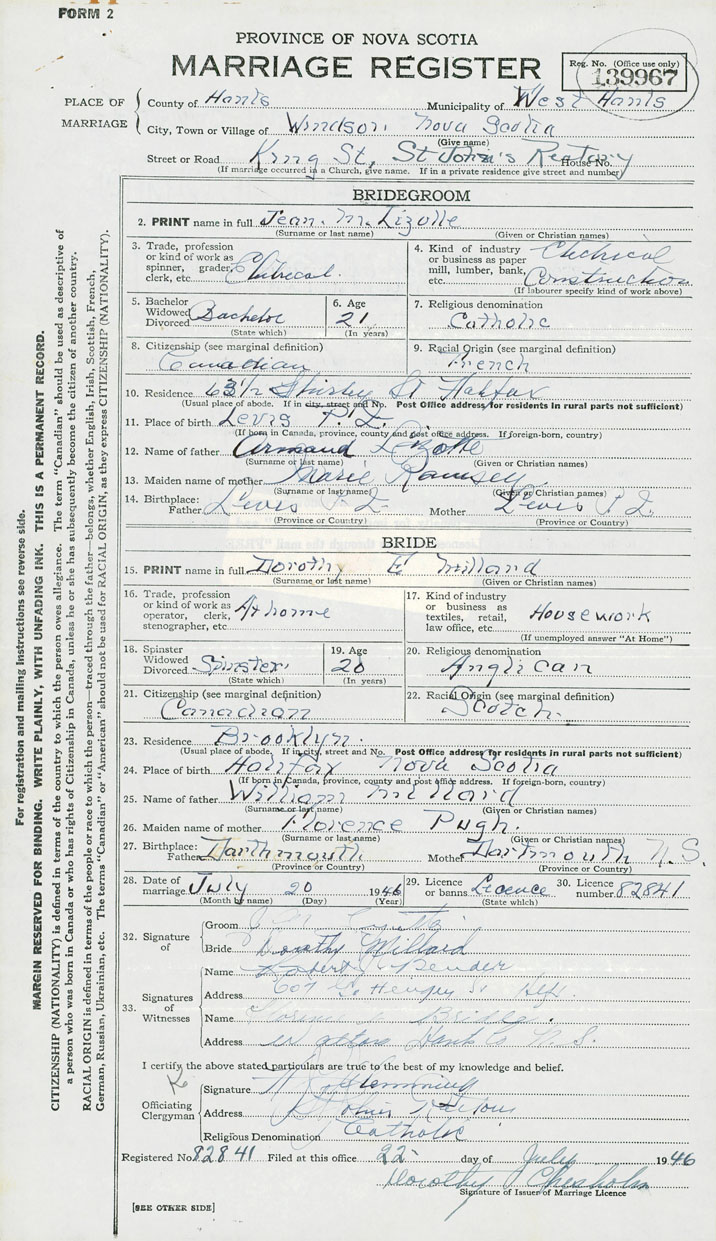 FORM 2
PROVINCE OF NOVA SCOTIA
MARRIAGE REGISTER
Reg. No. (Office use only)
139967
PLACE OF MARRIAGE
County of Hants Municipality of West Hants
City, Town or Village of Windsor Nova Scotia
(Give name)
Street or Road King St, St John's Rectory House No.
(If marriage occurred in a Church, give name. If in a private residence give street and number)
BRIDEGROOM
2. PRINT name in full Jean. M. Lizotte
(Surname or last name) (Given or Christian names)
3. Trade, profession or kind of work as spinner, grader, clerk, etc.
4. Kind of industry or business as paper mill, lumber, bank, etc. Construction
(If labourer specify kind of work above)
5. Bachelor Widowed Divorced Bachelor
(State which)
6. Age 21
(In years)
7. Religious denomination Catholic
8. Citizenship (see marginal definition) Canadian
9. Racial Origin (see marginal definition) French
10. Residence 63½ St Halifax
(Usual place of abode. If in city, street and No. Post Office address for residents in rural parts not sufficient)
11. Place of birth Levis P.Q.
(If born in Canada, province, county and post office address. If foreign-born, country)
12. Name of father Armand Lizotte
(Surname or last name) (Given or Christian names)
13. Maiden name of mother Marie Ramsey
(Surname or last name) (Given or Christian names)
14. Birthplace: Father Levis P.Q. Mother Levis P.Q.
(Province or Country) (Province or Country)
BRIDE
15. PRINT name in full Dorothy E Millard
(Surname or last name) (Given or Christian names)
16. Trade, profession or kind of work as operator, clerk, stenographer, etc. At home
17. Kind of industry or business as textiles, retail, law office, etc. Housework
(If unemployed answer "At Home")
18. Spinster Widowed Divorced Spinster
(State which)
19. Age 20
(In years)
20. Religious denomination Anglican
21. Citizenship (see marginal definition) Canadian
22. Racial Origin (see marginal definition) Scotch.
23. Residence Brooklyn.
(Usual place of abode. If in city, street and No. Post Office address for residents in rural parts not sufficient)
24. Place of birth Halifax Nova Scotia
(If born in Canada, province, county and post office address. If foreign-born, country)
25. Name of father William Millard
(Surname or last name) (Given or Christian names)
26. Maiden name of mother Florence Pugh.
(Surname or last name) (Given or Christian names)
27. Birthplace: Father Dartmouth Mother Dartmouth N.S.
(Province or Country) (Province or Country)
28. Date of marriage July 20 1946
(Month by name) (Day) (Year)
29. Licence or banns Licence
(State which)
30. Licence number 82841
32. Signature of
Groom
Bride Dorothy Millard
33. Signatures of Witnesses
Name Robert Bender
Address
Name
Address Hants Co N.S.
I certify the above stated particulars are true to the best of my knowledge and belief.
Officiating Clergyman
Signature
Address
Religious Denomination Catholic
Registered No. 82841 Filed at this office 22 day of July 1946
Dorothy Chisholm
Signature of Issuer of Marriage Licence
[SEE OTHER SIDE]
For registration and mailing instructions see reverse side.
MARGIN RESERVED FOR BINDING. WRITE PLAINLY, WITH UNFADING INK. THIS IS A PERMANENT RECORD.
CITIZENSHIP (NATIONALITY) is defined in terms of the country to which the person owes allegiance. The term "Canadian" should be used as descriptive of
a person who was born in Canada or who has rights of Citizenship in Canada, unless he or she has subsequently become the citizen of another country.
RACIAL ORIGIN is defined in terms of the people or race to which the person—traced through the father—belongs, whether English, Irish, Scottish, French,
German, Russian, Ukrainian, etc. The terms "Canadian" or "American" should not be used for RACIAL ORIGIN, as they express CITIZENSHIP (NATIONALITY).